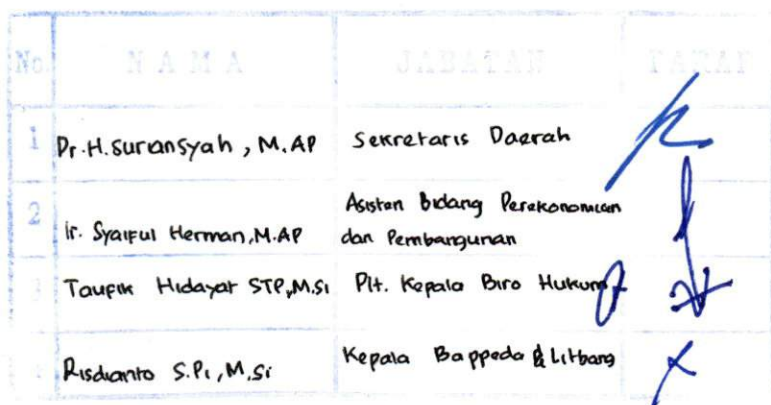 No. N A M A JABATAN PARAF
1 Dr. H. Suriansyah, M.AP Sekretaris Daerah
2 Ir. Syaiful Herman, M.AP Asisten Bidang Perekonomian
dan Pembangunan
3 Taufik Hidayat STP, M.Si Plt. Kepala Biro Hukum
4 Risdianto S.Pi, M.Si Kepala Bappeda & Litbang